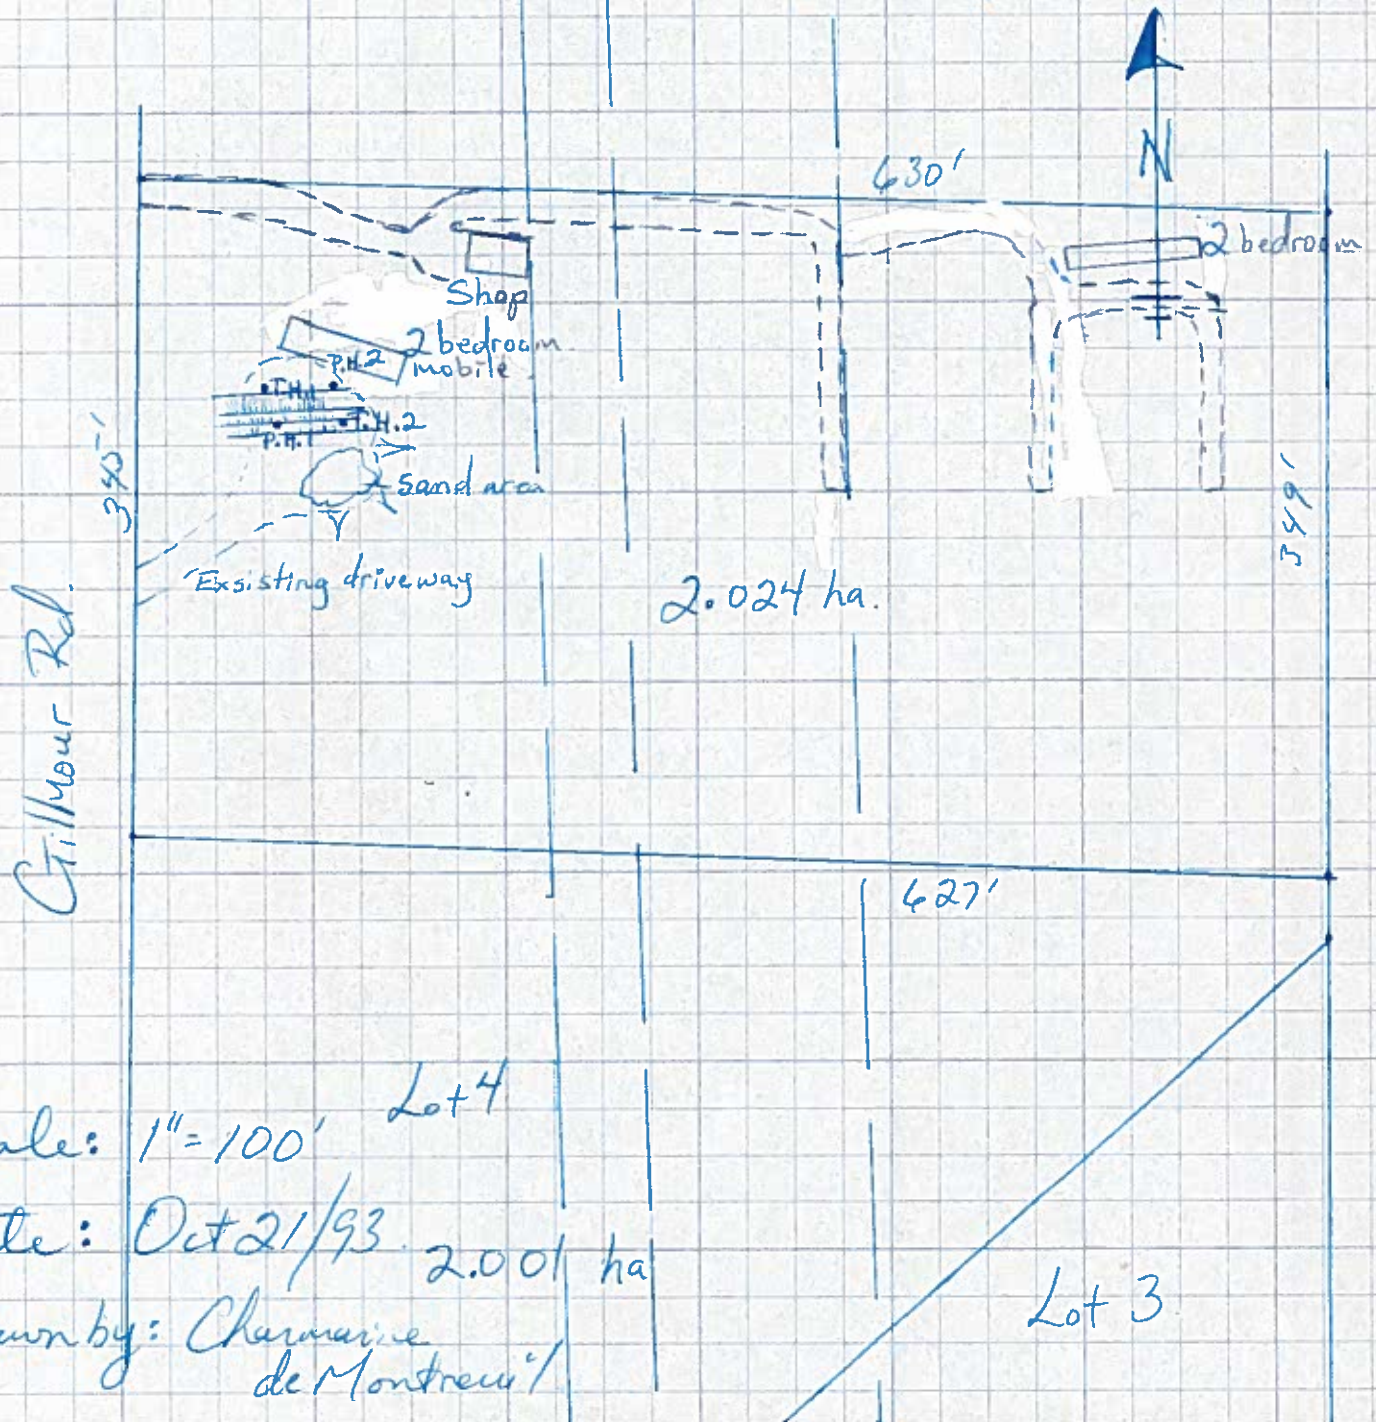 N
630'
2 bedroom
Shop
2 bedroom
mobile
P.H.2
T.H.1
T.H.2
P.H.1
Sand area
345'
349'
Exsisting driveway
2.024 ha.
Gillmour Rd.
627'
Lot 4
ale: 1"=100'
te: Oct 21/93
2.001 ha
Lot 3
awn by: Charmaine
de Montreuil